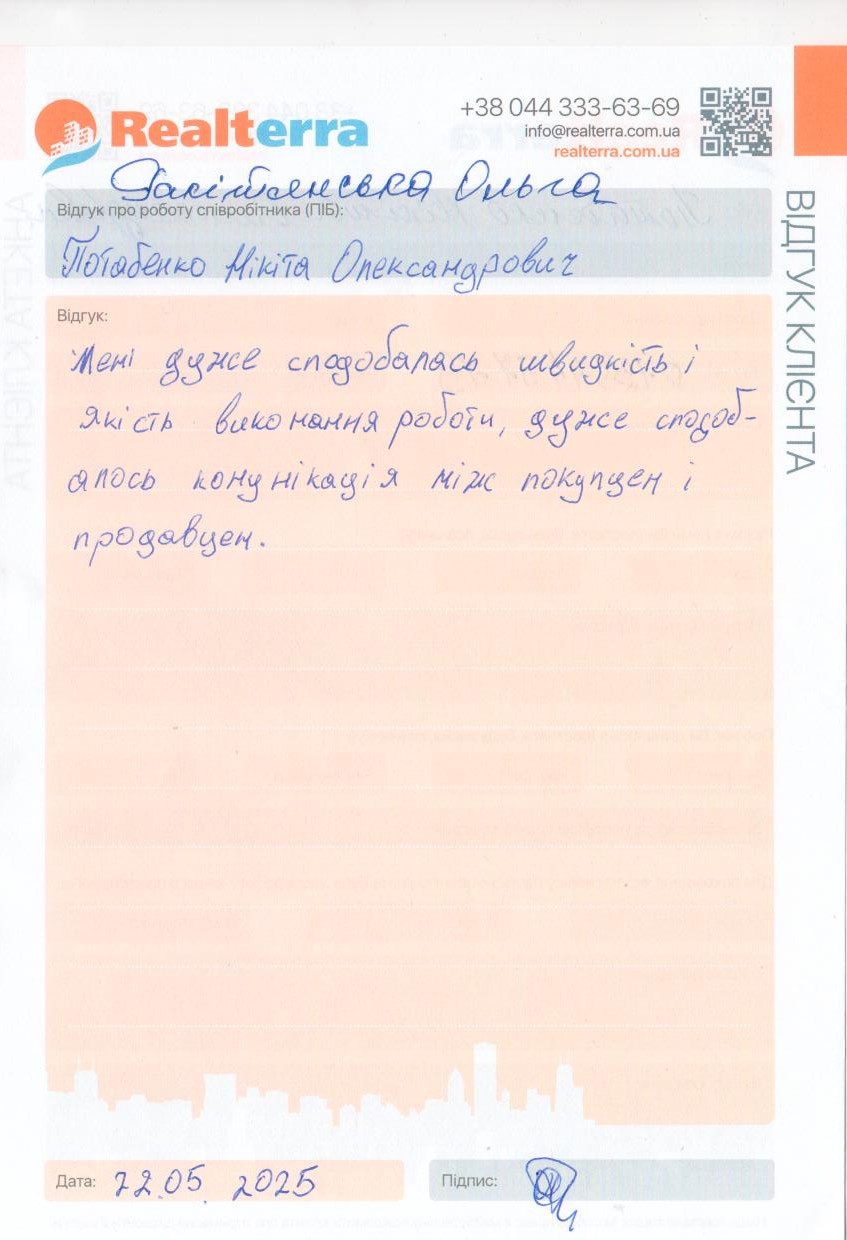 Realterra
+38 044 333-63-69
info@realterra.com.ua
realterra.com.ua
Ольга
Відгук про роботу співробітника (ПІБ):
Потабенко Нікіта Олександрович
ВІДГУК КЛІЄНТА
Відгук:
Мені дуже сподобалась швидкість і
якість виконання роботи, дуже сподоб-
алось комунікація між покупцем і
продавцем.
Дата: 22.05. 2025
Підпис: